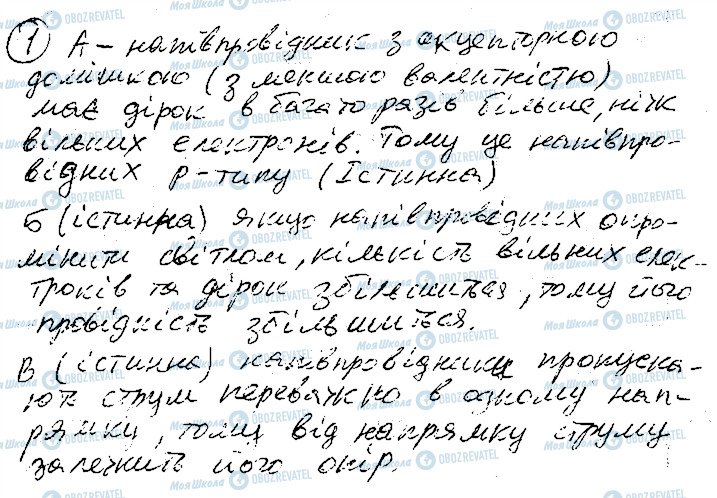 ① А – напівпровідник з акцепторною
домішкою (з меншою валентністю)
має дірок в багато разів більше, ніж
вільних електронів. Тому це напівпро-
відник p-типу (Істинна)
Б (істинна) якщо напівпровідник опро-
мінити світлом, кількість вільних елек-
тронів та дірок збільшиться, тому його
провідність збільшиться.
В (істинна) напівпровідники пропуска-
ють струм переважно в одному нап-
рямку, тому від напрямку струму
залежить його опір.